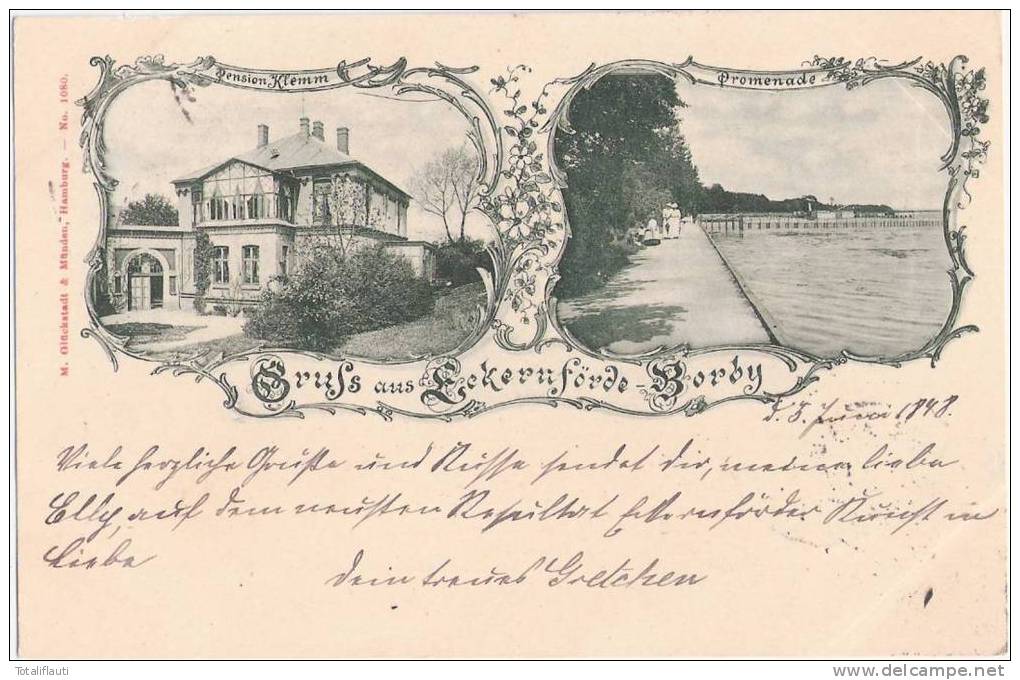 Pension Klemm
Promenade
M. Glückstadt & Münden, Hamburg. — No. 1080.
Gruss aus Eckernförde-Borby
d. 3. Juni 1898.
Viele herzliche Grüße und Küsse sendet dir, meine liebe
Elly, auf dem neusten Resultat Eckernförder Kunst in
Liebe
dein treues Gretchen
Totaliflauti
www.delcampe.net